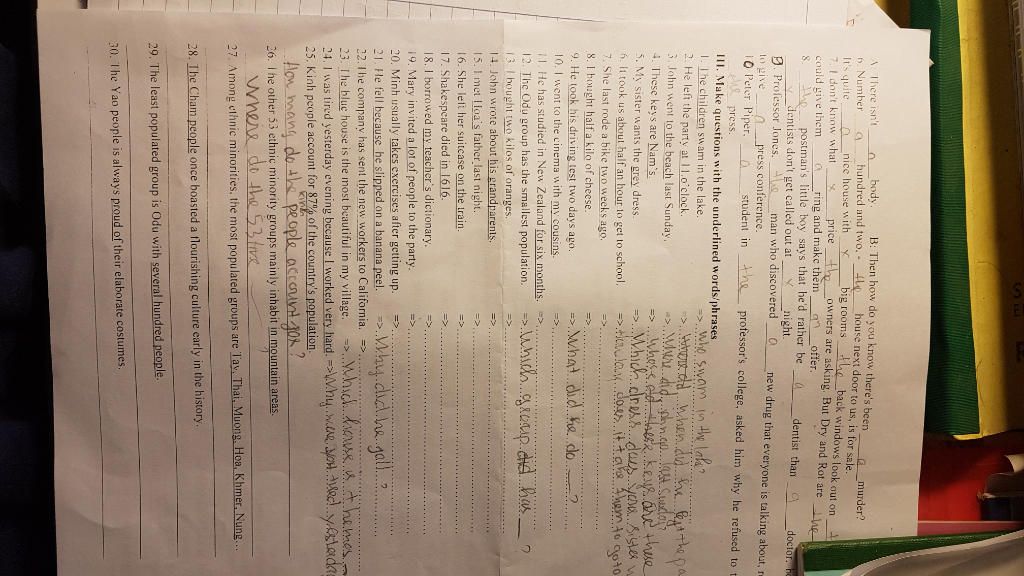 A There isn't a body. B: Then how do you know there's been a murder?
6. Number a hundred and two, - the house next door to us, is for sale.
It's quite a nice house with x big rooms the back windows look out on
7. I don't know what x price the owners are asking. But Dry and Rot are the
could give them a ring and make them an offer.
8. the postman's little boy says that he'd rather be a dentist than a doctor,
dentists don't get called out at x night.
9 Professor Jones, the man who discovered a new drug that everyone is talking about,
to give a press conference.
10 Peter Piper, a student in the professor's college, asked him why he refused to
the press.
III. Make questions with the underlined words/phrases
1. The children swam in the lake. => Who swam in the lake?
2. He left the party at 11 o'clock. => when did he left the pa
3. John went to the beach last Sunday. => Where did
4. These keys are Nam's. => Whose these keys are these
5. My sister wants the grey dress. => Which dress does your sister w
6. It took us about half an hour to get to school. => How long does it take them to go to
7. She last rode a bike two weeks ago. =>
8. I bought half a kilo of cheese. =>
9. He took his driving test two days ago. => What did he do ?
10. I went to the cinema with my cousins. =>
11. He has studied in New Zealand for six months. =>
12. The Odu group has the smallest population. => Which group has ?
13. I bought two kilos of oranges. =>
14. John wrote about his grandparents. =>
15. I met Hoa's father last night. =>
16. She left her suitcase on the train. =>
17. Shakespeare died in 1616. =>
18. I borrowed my teacher's dictionary. =>
19. Mary invited a lot of people to the party. =>
20. Minh usually takes exercises after getting up. =>
21. He fell because he slipped on a banana peel. => Why did he fall?
22. The company has sent the new workers to California. =>
23. The blue house is the most beautiful in my village. => Which house is the
24. I was tired yesterday evening because I worked very hard. => Why were you tired yesterda
25. Kinh people account for 87% of the country's population.
How many do the kinh people account for?
26. The other 53 ethnic minority groups mainly inhabit in mountain areas.
Where do the 53
27. Among ethnic minorities, the most populated groups are Tay, Thai, Muong, Hoa, Khmer, Nung...
28. The Cham people once boasted a flourishing culture early in the history.
29. The least populated group is Odu with several hundred people.
30. The Yao people is always proud of their elaborate costumes.